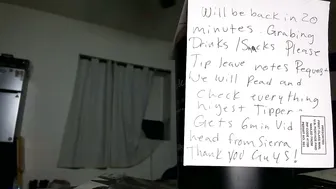 Will be back in 20
minutes. Grabing
Drinks/Snacks Please
Tip leave notes Request
We will Read and
check everything
higest Tipper -
Gets 6min Vid
head from Sierra
Thank You Guys!